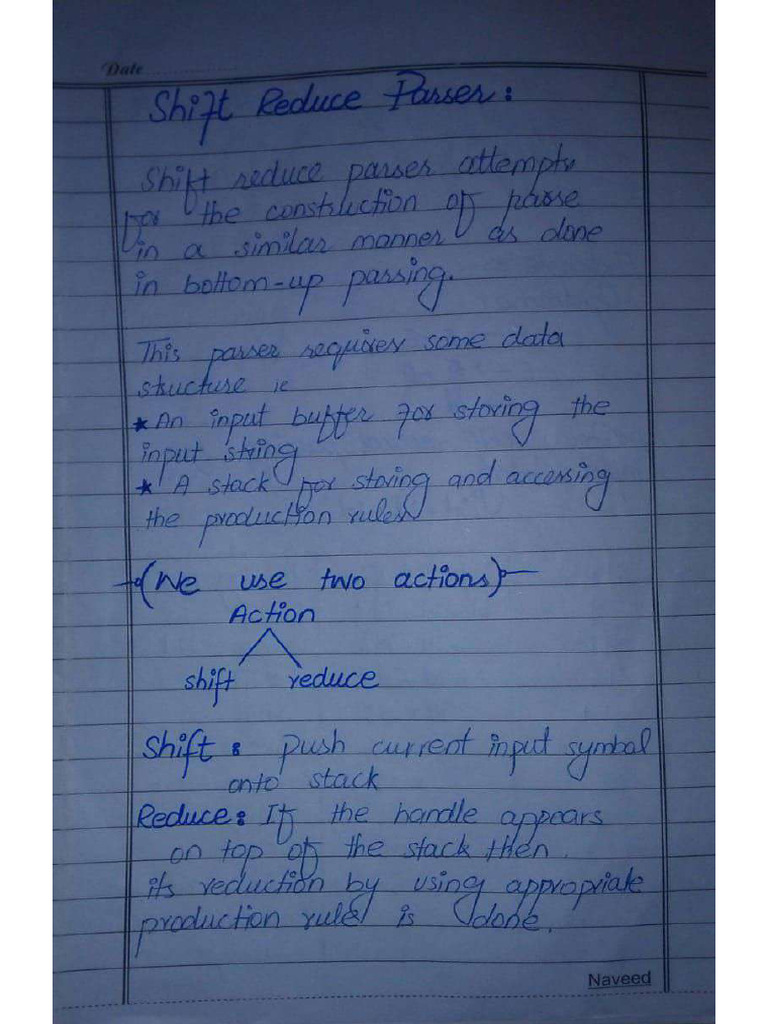 Date
Shift Reduce Parser:
Shift reduce parser attempts
for the construction of parse
in a similar manner as done
in bottom-up parsing.
This parser requires some data
structure ie
* An input buffer for storing the
input string
* A stack for storing and accessing
the production rules
(We use two actions)
Action
shift reduce
Shift: Push current input symbol
onto stack
Reduce: If the handle appears
on top of the stack then.
its reduction by using appropriate
production rule is done.
Naveed